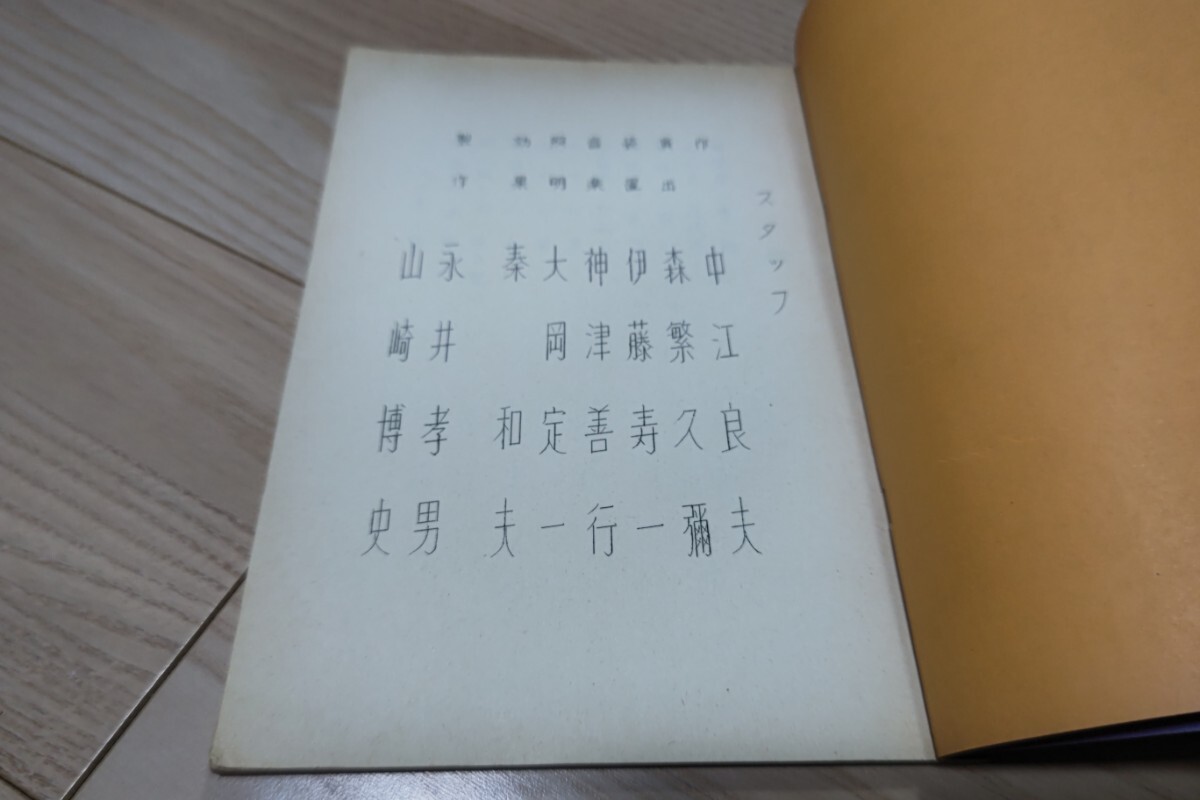 スタッフ
作 中江良夫
演出 森繁久彌
装置 伊藤寿一
音楽 神津善行
照明 大岡定一
効果 秦和夫
製作 永井孝男
山崎博史